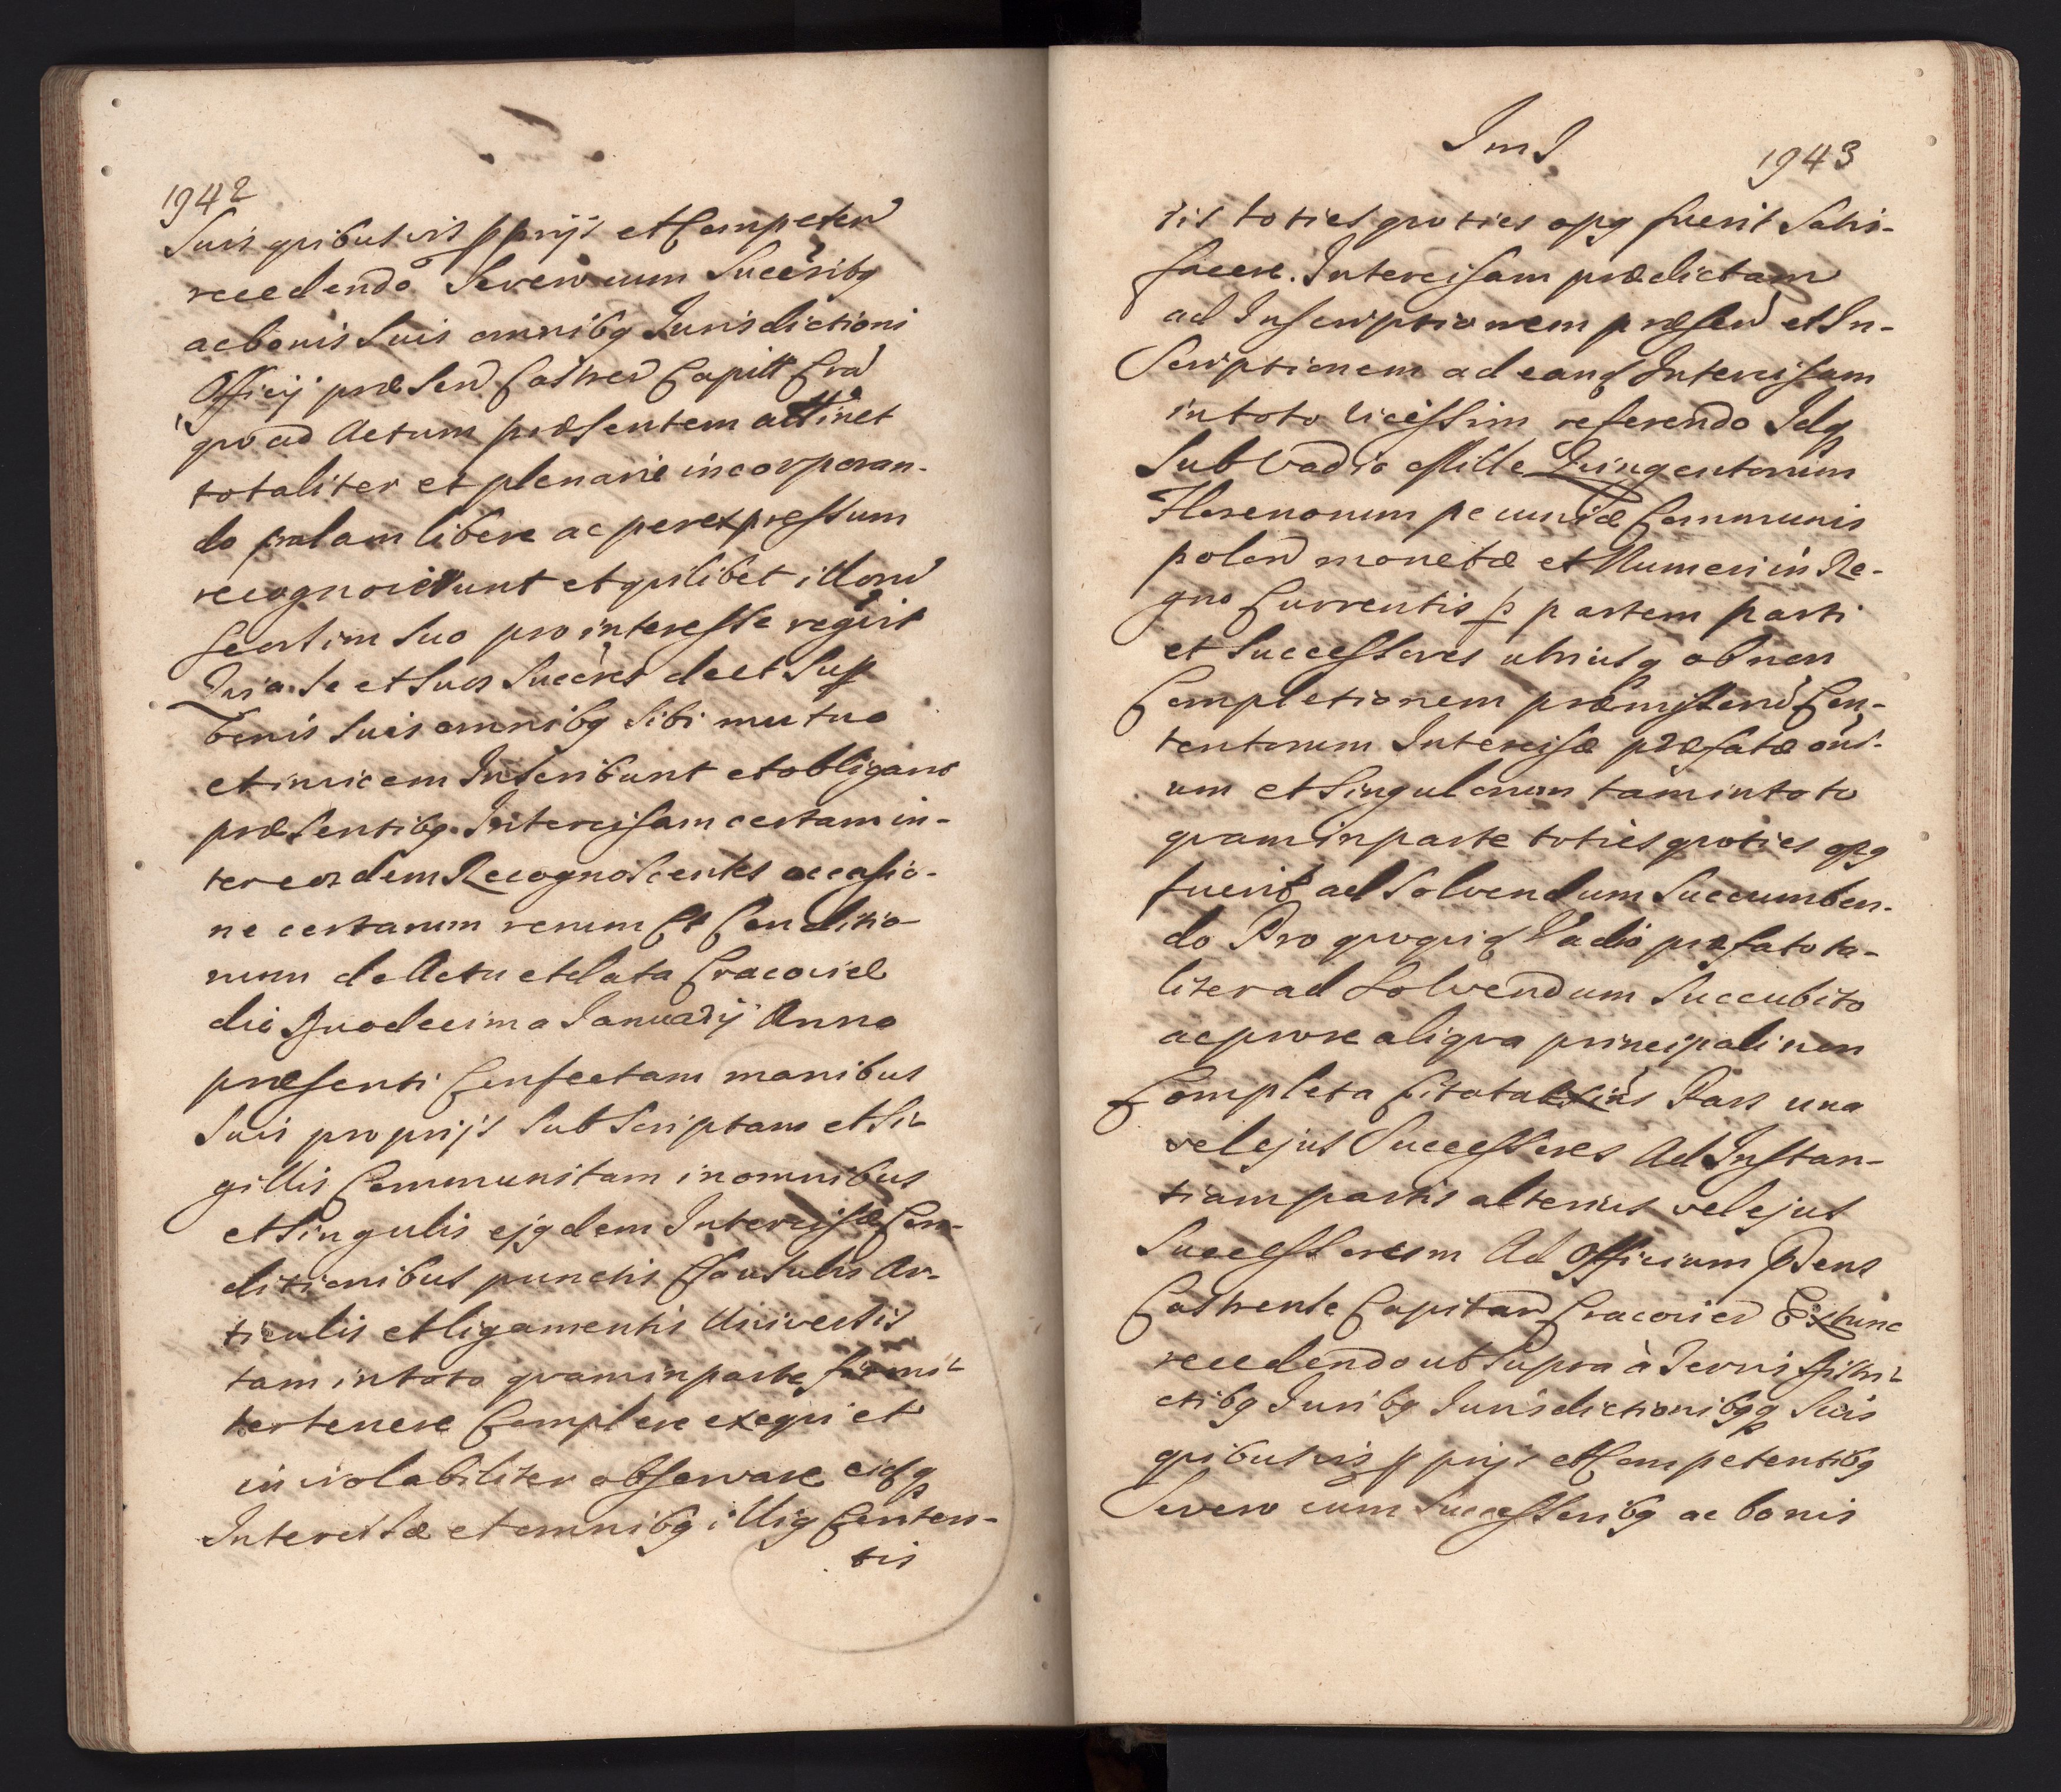 1942
Suis quibusvis pprijs et Competen
recedendo Se vero cum Succribq
ac bonis Suis omnibq Jurisdictioni
Officij præsen Castren Capitt Cra
quo ad Actum præsentem attinet
totaliter et plenarie incorporan-
do palam libere ac per expressum
recognoverunt et quilibet illorū
seorsim suo pro interesse recgvit
Quia Se et Suos Succres de et Sup
bonis Suis omnibq Sibi mutuo
et invicem Inscribunt et obligant
præsentibq Intercisam certam in-
ter eosdem Recognoscentes occasio-
ne certarum rerum Et Conditio-
num de Actu et data Cracoviæ
die Duodecima Januarij Anno
præsenti Confectam manibus
Suis proprijs Subscriptam et Si-
gillis Communitam in omnibus
et Singulis ejqdem Intercisæ Con-
ditionibus punctis Clausulis Ar-
ticulis et ligamentis Universis
tam in toto quam in parte firmi-
ter tenere Complere exequi et
inviolabiliter observare eidq
Intercisæ et omnibq illiq Conten-
tis
JmJ
1943
tis toties quoties opq fuerit Satis-
facere. Intercisam prædictam
ad Inscriptionem præsen et In-
scriptionem ad eandq Intercisam
in toto vicissim referendo Idq
Sub Vadio Mille Quingentorum
Florenorum pecuniæ Communis
polon monetæ et Numeri in Re-
gno Currentis p partem parti
et Successores utriusq ob non
Completionem præmissorū Con-
tentorum Intercisæ præfatæ oni-
um et Singulorum tam in toto
quam in parte toties quoties opq
fuerit ad Solvendum Succumben-
do Pro quoquidq Vadio præfato ta-
liter ad Solvendum Succubito
ac pro re aliqua principali non
Completa Citata Pars una
vel ejus Successores Ad Instan-
tiam partis alterius vel ejus
Successorum Ad Officium Præns
Castrense Capitan Cracovien Extunc
recedendo ut Supra à Terris Distri-
ctibq Juribq Jurisdictionibqq Suis
quibusvis pprijs et Competentibq
Se vero cum Successoribq ac bonis